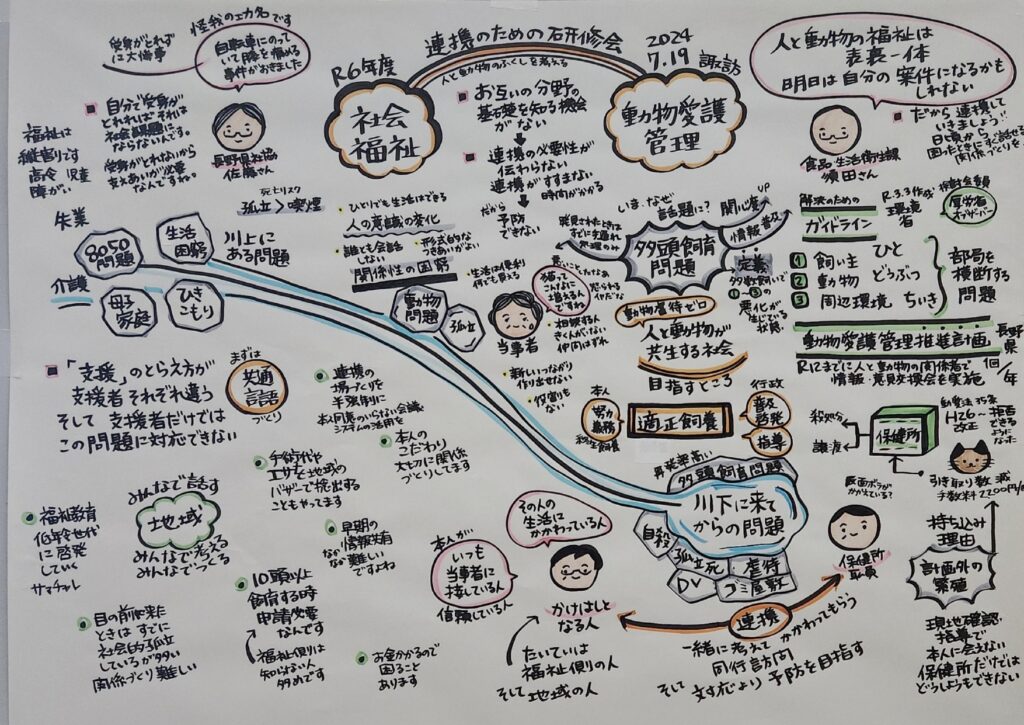 怪我の功名です
受身がとれず
に大惨事
自転車にのって
いて膝を痛める
事件がおきました
自分で受身が
とれればそれは
社会課題に
ならないんです。
受身がとれないから
支えあいが必要
なんですね。
長野県社協
佐藤さん
福祉は
縦割りです
高令 児童
障がい
連携のための研修会
人と動物のふくしを考える
R6年度
2024
7.19 諏訪
社会
福祉
動物愛護
管理
お互いの分野の
基礎を知る機会
がない
連携の必要性が
伝わらない
連携がすすまない
時間がかかる
だから
予防
できない
人と動物の福祉は
表裏一体
明日は自分の案件になるかも
しれない
食品・生活衛生課
須田さん
だから連携して
いきましょう!!
日頃から
困ったときにすぐ話せる
関係づくりを
失業
8050
問題
生活
困窮
川上に
ある問題
介護
母子
家庭
ひき
こもり
死亡リスク
孤立>喫煙
ひとりでも生活はできる
人の意識の変化
誰とも会話
しない
形式的な
つきあいがよい
関係性の困窮
生活は便利
何でも買える
動物
問題
孤立
当事者
猫って
こんなに
増えるん
ですね
怒られる
相談する
きくんがない
仲間はずれ
新しいつながり
作り出せない
役割も
ない
いま、なぜ
話題に?
関心度
UP
情報普及
多頭飼育
問題
発見されたときは
すでに手遅れ
定義
多数飼いで
悪化が
生じている
状態
動物虐待ゼロ
人と動物が
共生する社会
目指すところ
本人
努力
義務
適正飼養
行政
普及
啓発
指導
解決のための
ガイドライン
R.3.3作成
環境
省
厚労省
オブザーバー
1 飼い主 ひと
2 動物 どうぶつ
3 周辺環境 ちいき
部局を
横断する
問題
動物愛護管理推進計画
長野県
R12までに人と動物の関係者で
情報・意見交換会を実施
1回/年
殺処分
譲渡
保健所
H26~
改正
拒否
できる
ように
なった
引き取り数 減
手数料2200円/
持ち込み
理由
計画外の
繁殖
現地確認・
指導で
本人に会えない
保健所だけでは
どうしようもできない
「支援」のとらえ方が
支援者それぞれ違う
そして支援者だけでは
この問題に対応できない
まずは
共通
言語
づくり
連携の
場づくりを
半強制に
本人同意のいらない会議
システムの活用を
本人の
こだわり
大切に関係
づくりしてます
手術代や
エサなど地域の
バザーで捻出する
こともやってます
みんなで話す
地域
みんなで考える
みんなでつくる
福祉教育
低年令世代
に啓発
していく
サマチャレ
早期の
情報共有
なか難しい
ですよね
10頭以上
飼育する時
申請必要
なんです
福祉側は
知らない人
多めです
目の前に来た
ときはすでに
社会的孤立
しているが多い
関係づくり難しい
お金かかるので
困ること
あります
再発率高い
多頭飼育問題
川下に来て
からの問題
自殺
孤立死
虐待
DV
ゴミ屋敷
その人の
生活に
かかわっている人
本人が
いつも
当事者に
接している人
信頼している人
かけはしと
なる人
たいていは
福祉側の人
そして地域の人
連携
保健所
職員
一緒に考えて
かかわってもらう
同行訪問
そして
対応より予防を目指す